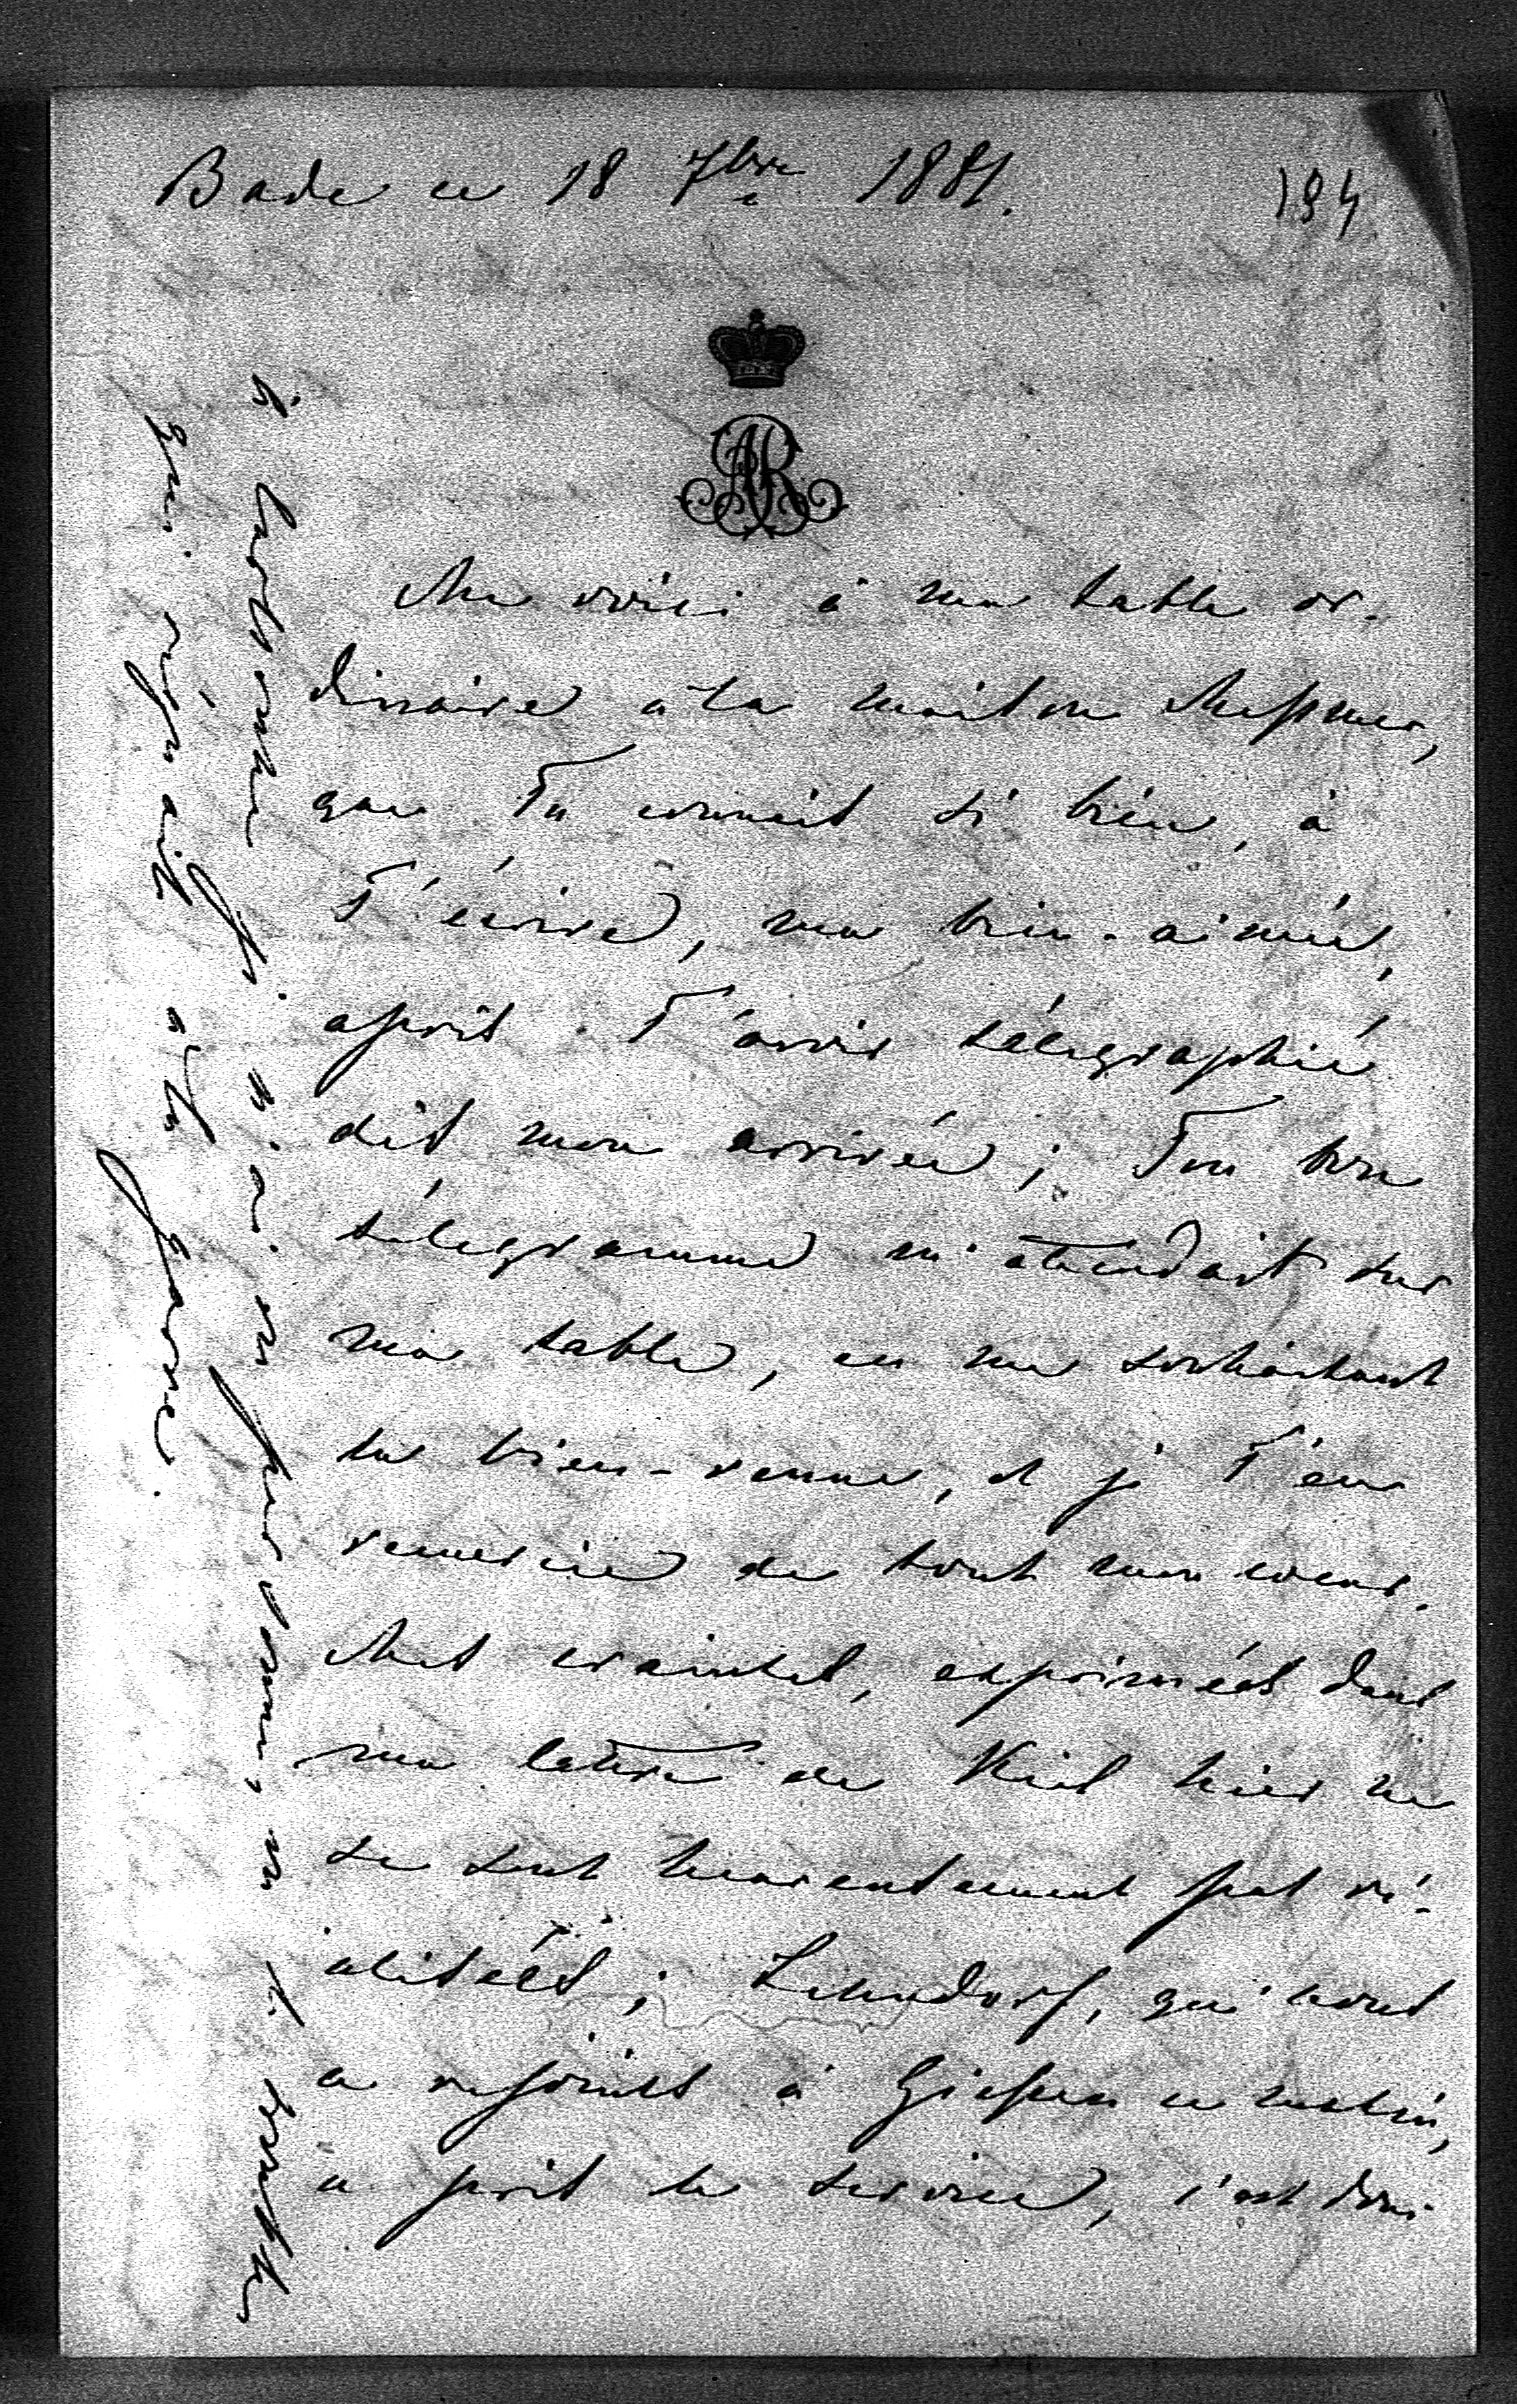 Bade ce 18 7bre 1881.
194
AR
Me voici à ma table or-
dinaire à la maison Messmer,
que Tu connais si bien, à
T'écrire, ma bien-aimée,
après T'avoir télégraphié
dès mon arrivée; Ton bon
télégramme m'attendait sur
ma table, en me souhaitant
la bien-venue, et je T'en
remercie de tout mon coeur.
Mes craintes, exprimées dans
ma lettre de Kiel hier ne
se sont heureusement pas ré-
alisées; Lehndorf, qui nous
a rejoints à Giessen ce matin,
a pris le service, c'est donc
à Carlsruhe
qui régnait à la gare.